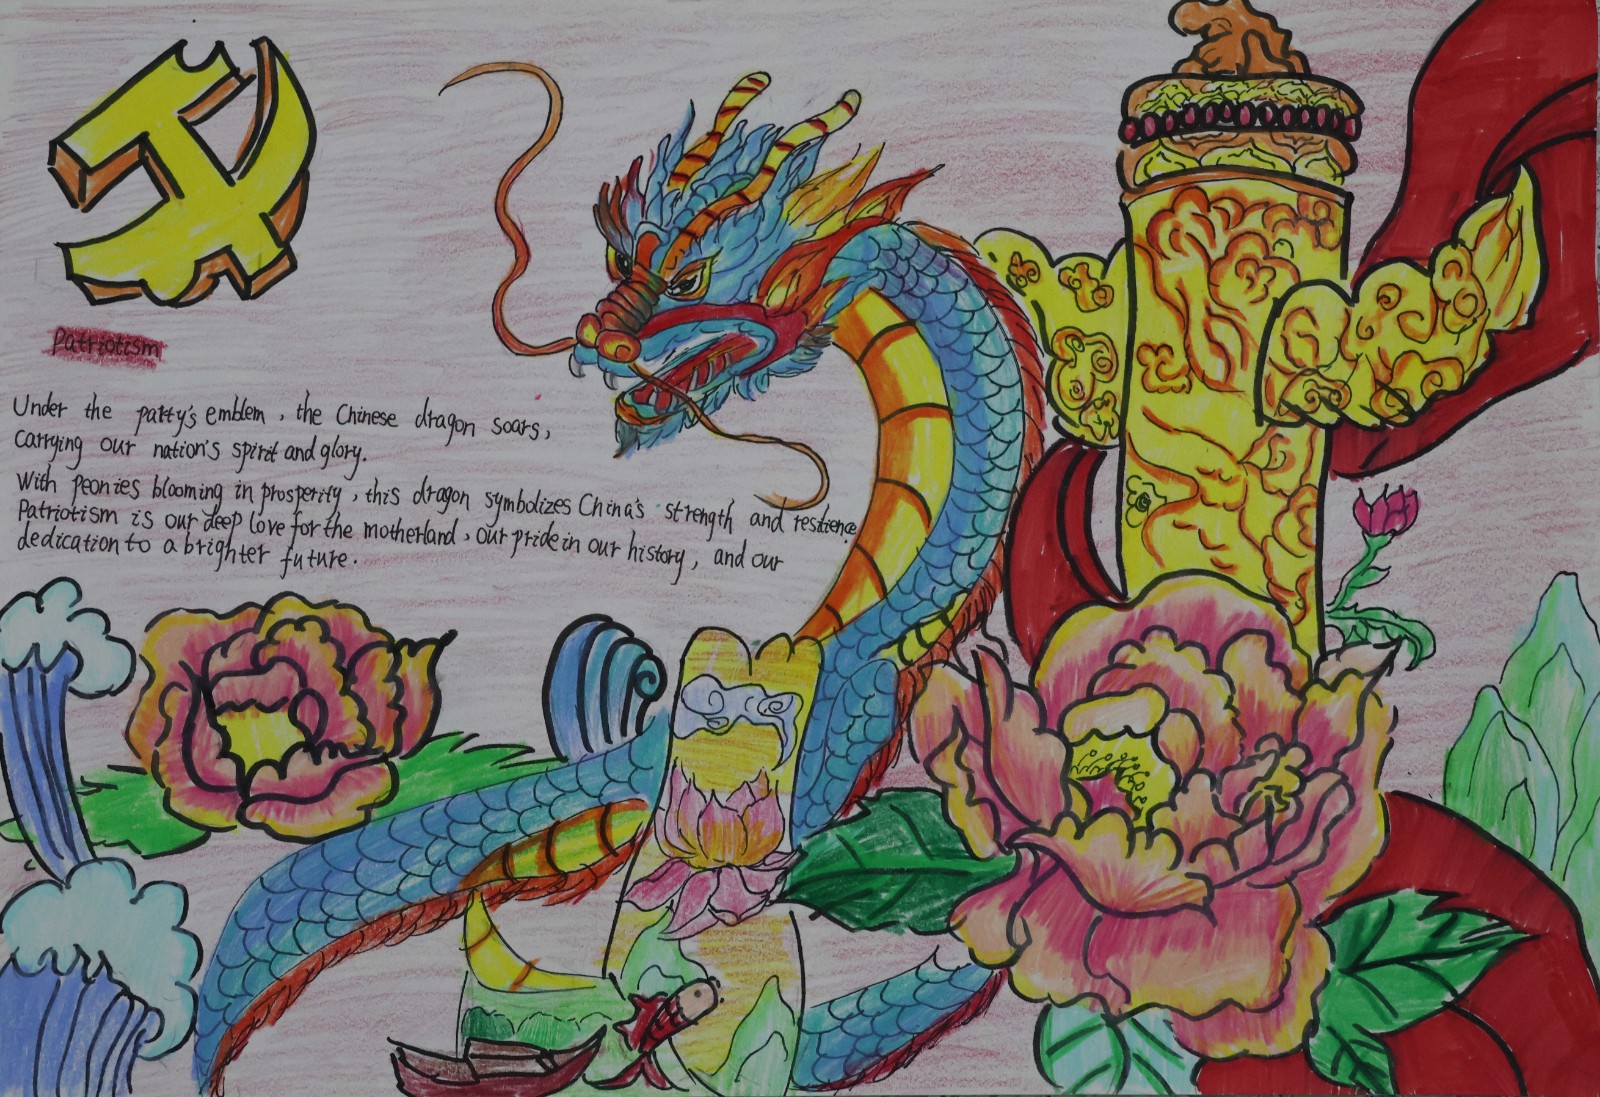 Patriotism
Under the party's emblem, the Chinese dragon soars,
Carrying our nation's spirit and glory.
With peonies blooming in prosperity, this dragon symbolizes China's strength and resilience
Patriotism is our deep love for the motherland, our pride in our history, and our
dedication to a brighter future.